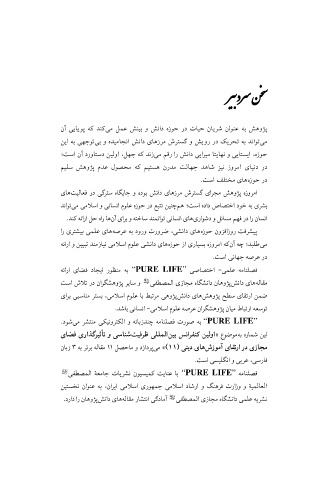 سخن سردبیر
پژوهش به عنوان شریان حیات در حوزه دانش و بینش عمل می‌کند که پویایی آن
می‌تواند به تحریک در رویش و گسترش مرزهای دانش انجامیده و بی‌توجهی به این
حوزه، ایستایی و نهایتا میرایی دانش را رقم می‌زند که جهل، اولین دستاورد آن است؛
در دنیای امروز نیز شاهد جهالت مدرن هستیم که محصول عدم پژوهش سلیم
در حوزه‌های مختلف است.
امروزه پژوهش مجرای گسترش مرزهای دانش بوده و جایگاه سترگی در فعالیت‌های
بشری به خود اختصاص داده است؛ همچنین تتبع در حوزه علوم انسانی و اسلامی می‌تواند
انسان را در فهم مسائل و دشواری‌های انسانی توانمند ساخته و برای آن‌ها راه حل ارائه کند.
پیشرفت روزافزون حوزه‌های دانشی، ضرورت ورود به عرصه‌های علمی بیشتری را
می‌طلبد؛ چه آن‌که امروزه بسیاری از حوزه‌های دانشی علوم اسلامی نیازمند تبیین و ارائه
در عرصه جهانی است.
فصلنامه علمی- اختصاصی "PURE LIFE" به منظور ایجاد فضای ارائه
مقاله‌های دانش‌پژوهان دانشگاه مجازی المصطفی و سایر پژوهشگران در تلاش است
ضمن ارتقای سطح پژوهش‌های دانش‌پژوهی مرتبط با علوم اسلامی، بستر مناسبی برای
توسعه ارتباط میان پژوهشگران عرصه علوم اسلامی- انسانی باشد.
"PURE LIFE" به صورت فصلنامه چندزبانه و الکترونیکی منتشر می‌شود.
این شماره به‌موضوع «اولین کنفرانس بین‌المللی ظرفیت‌شناسی و تأثیرگذاری فضای
مجازی در ارتقای آموزش‌های دینی (۱۱)» می‌پردازد و ماحصل ۱۱ مقاله برتر به ۳ زبان
فارسی، عربی و انگلیسی است.
فصلنامه "PURE LIFE" با عنایت کمیسیون نشریات جامعة المصطفی
العالمیة و وزارت فرهنگ و ارشاد اسلامی جمهوری اسلامی ایران، به عنوان نخستین
نشریه علمی دانشگاه مجازی المصطفی آمادگی انتشار مقاله‌های دانش‌پژوهان را دارد.